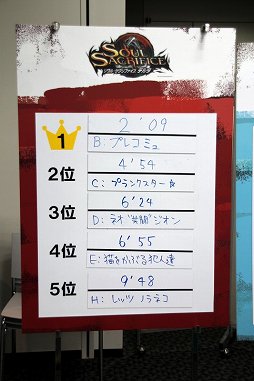 SOUL
SACRIFICE
ソウル・サクリファイス デルタ
1
2'09
B: プレコミュ
2位
4'54
C: プランクスター☆
3位
6'24
D: ネオ"共闘"ジオン
4位
6'55
E: 猫をかぶる犯人達
5位
9'48
H: レッツノラネコ